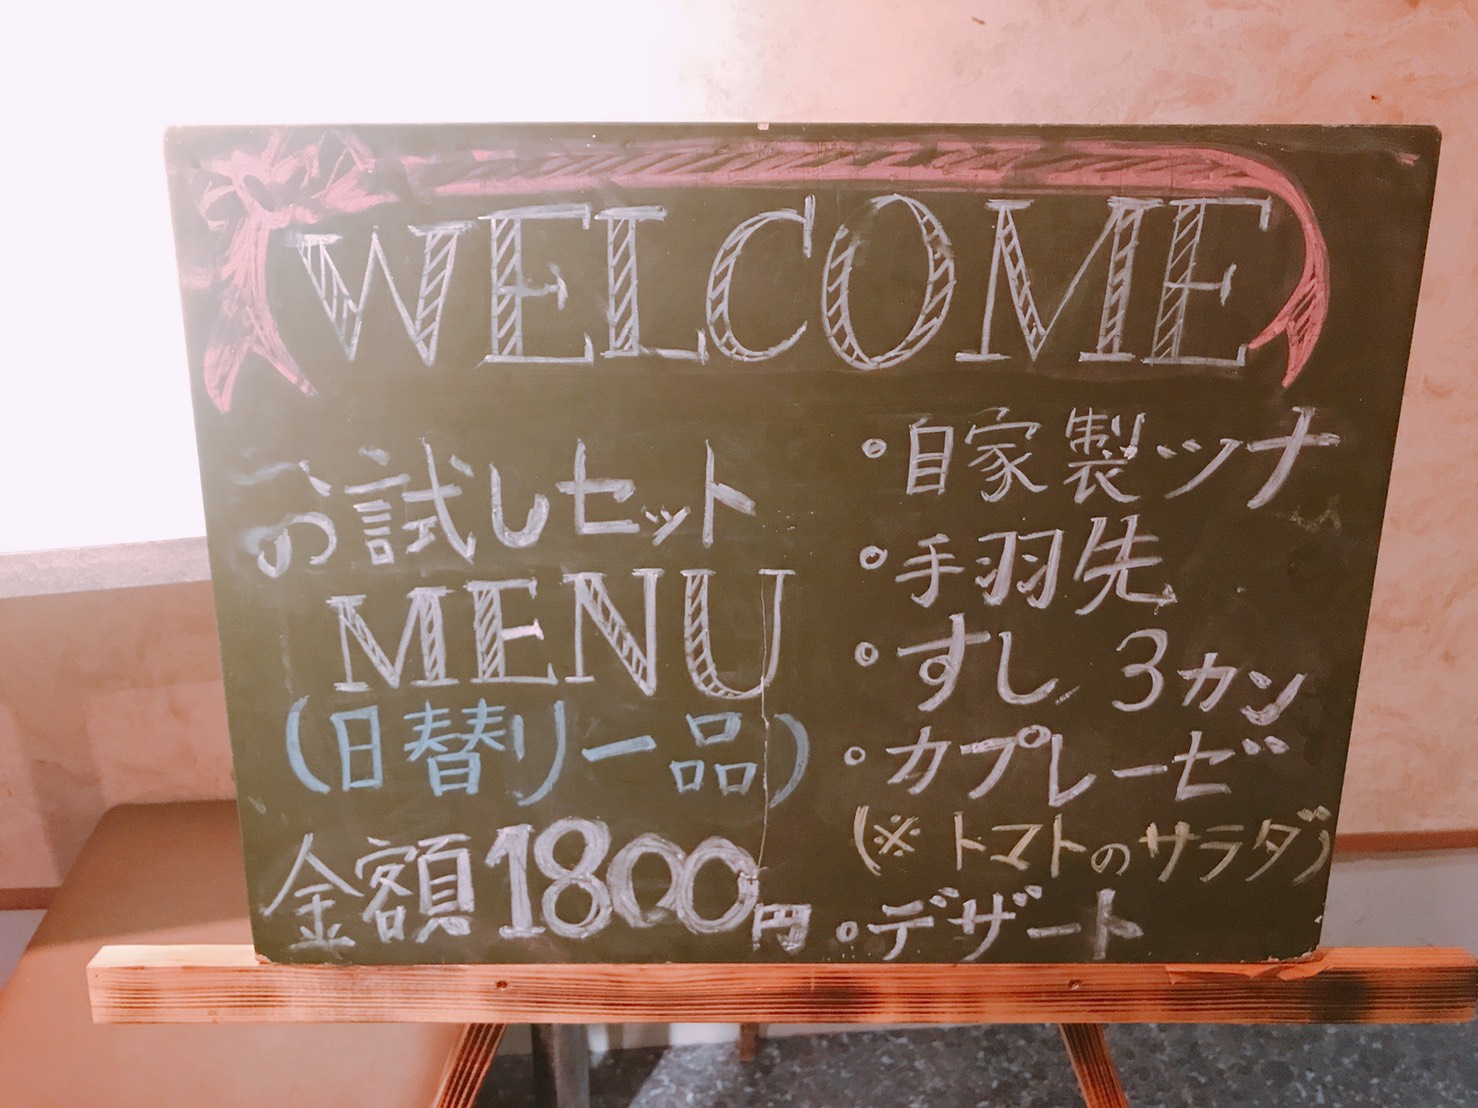 WELCOME
お試しセット
MENU
(日替り一品)
金額1800円
・自家製ツナ
・手羽先
・すし 3カン
・カプレーゼ
(※トマトのサラダ)
・デザート